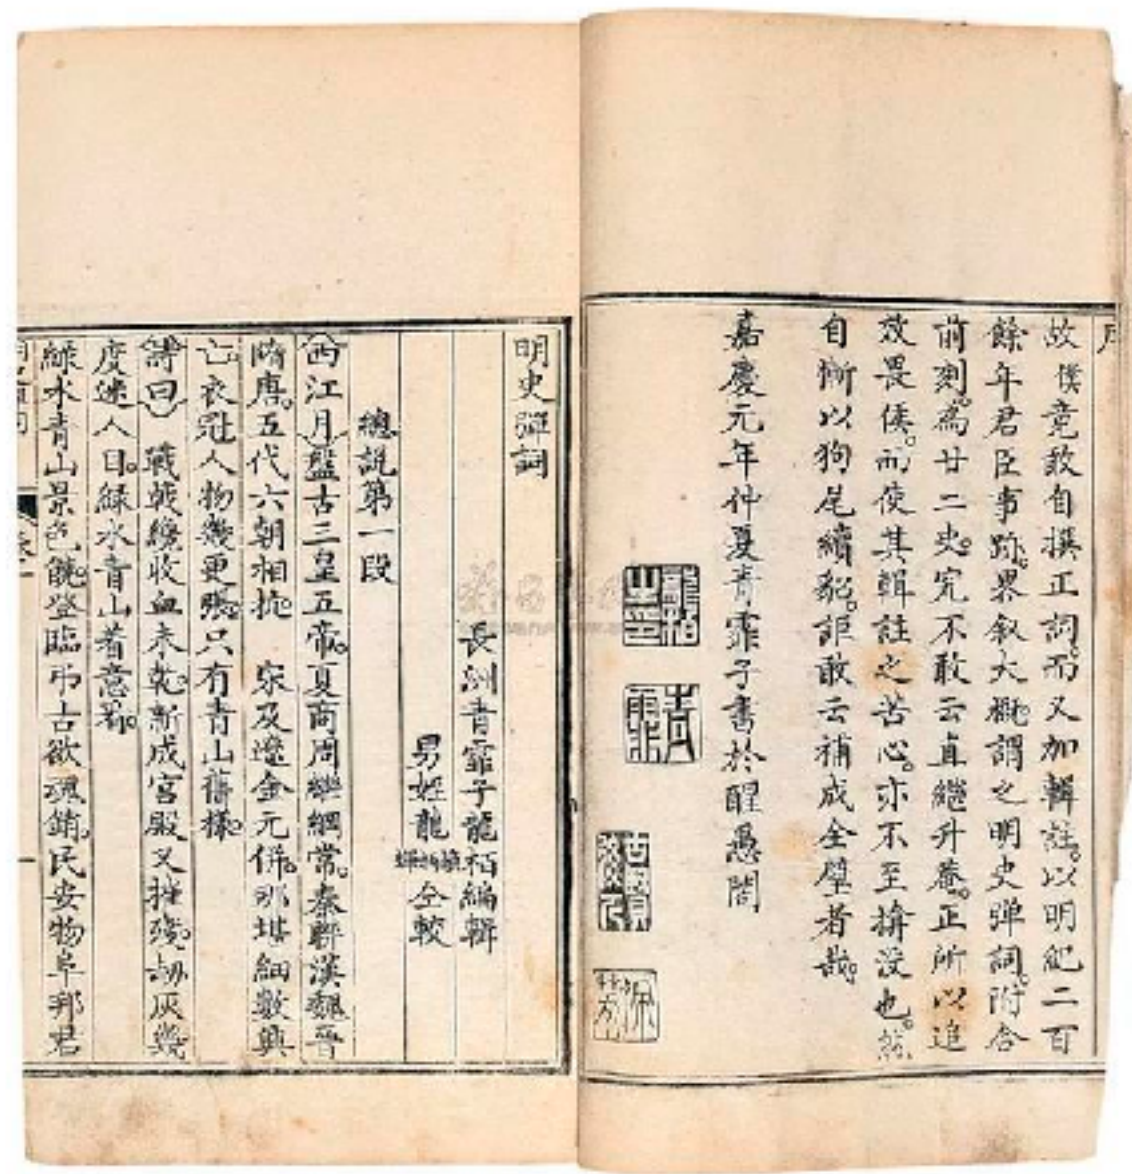 序
故僕竟敢自撰正詞。而又加輯註。以明紀二百
餘年君臣事跡。畧叙大概。謂之明史弹詞。附合
前刻。為廿二史。究不敢云直繼升菴。正所以追
效畏侯。而使其輯註之苦心。亦不至揜沒也。然
自慚以狗尾續貂。詎敢云補成全璧者哉。
嘉慶元年仲夏青霏子書於醒愚閣
龍柏之印
青霏
明史彈詞
長洲青霏子龍栢編輯
男姪龍 仝較
總説第一段
西江月 盤古三皇五帝。夏商周繼綱常。秦聯漢魏晉
隋唐。五代六朝相抗 宋及遼金元併。那堪細數興
亡。衣冠人物幾更張。只有青山舊樣。
詩曰 戰戟纔收血未乾。新成宮殿又摧殘。刼灰幾
度迷人目。緑水青山著意看。
緑水青山景色饒。登臨弔古欲魂銷。民安物阜邦君